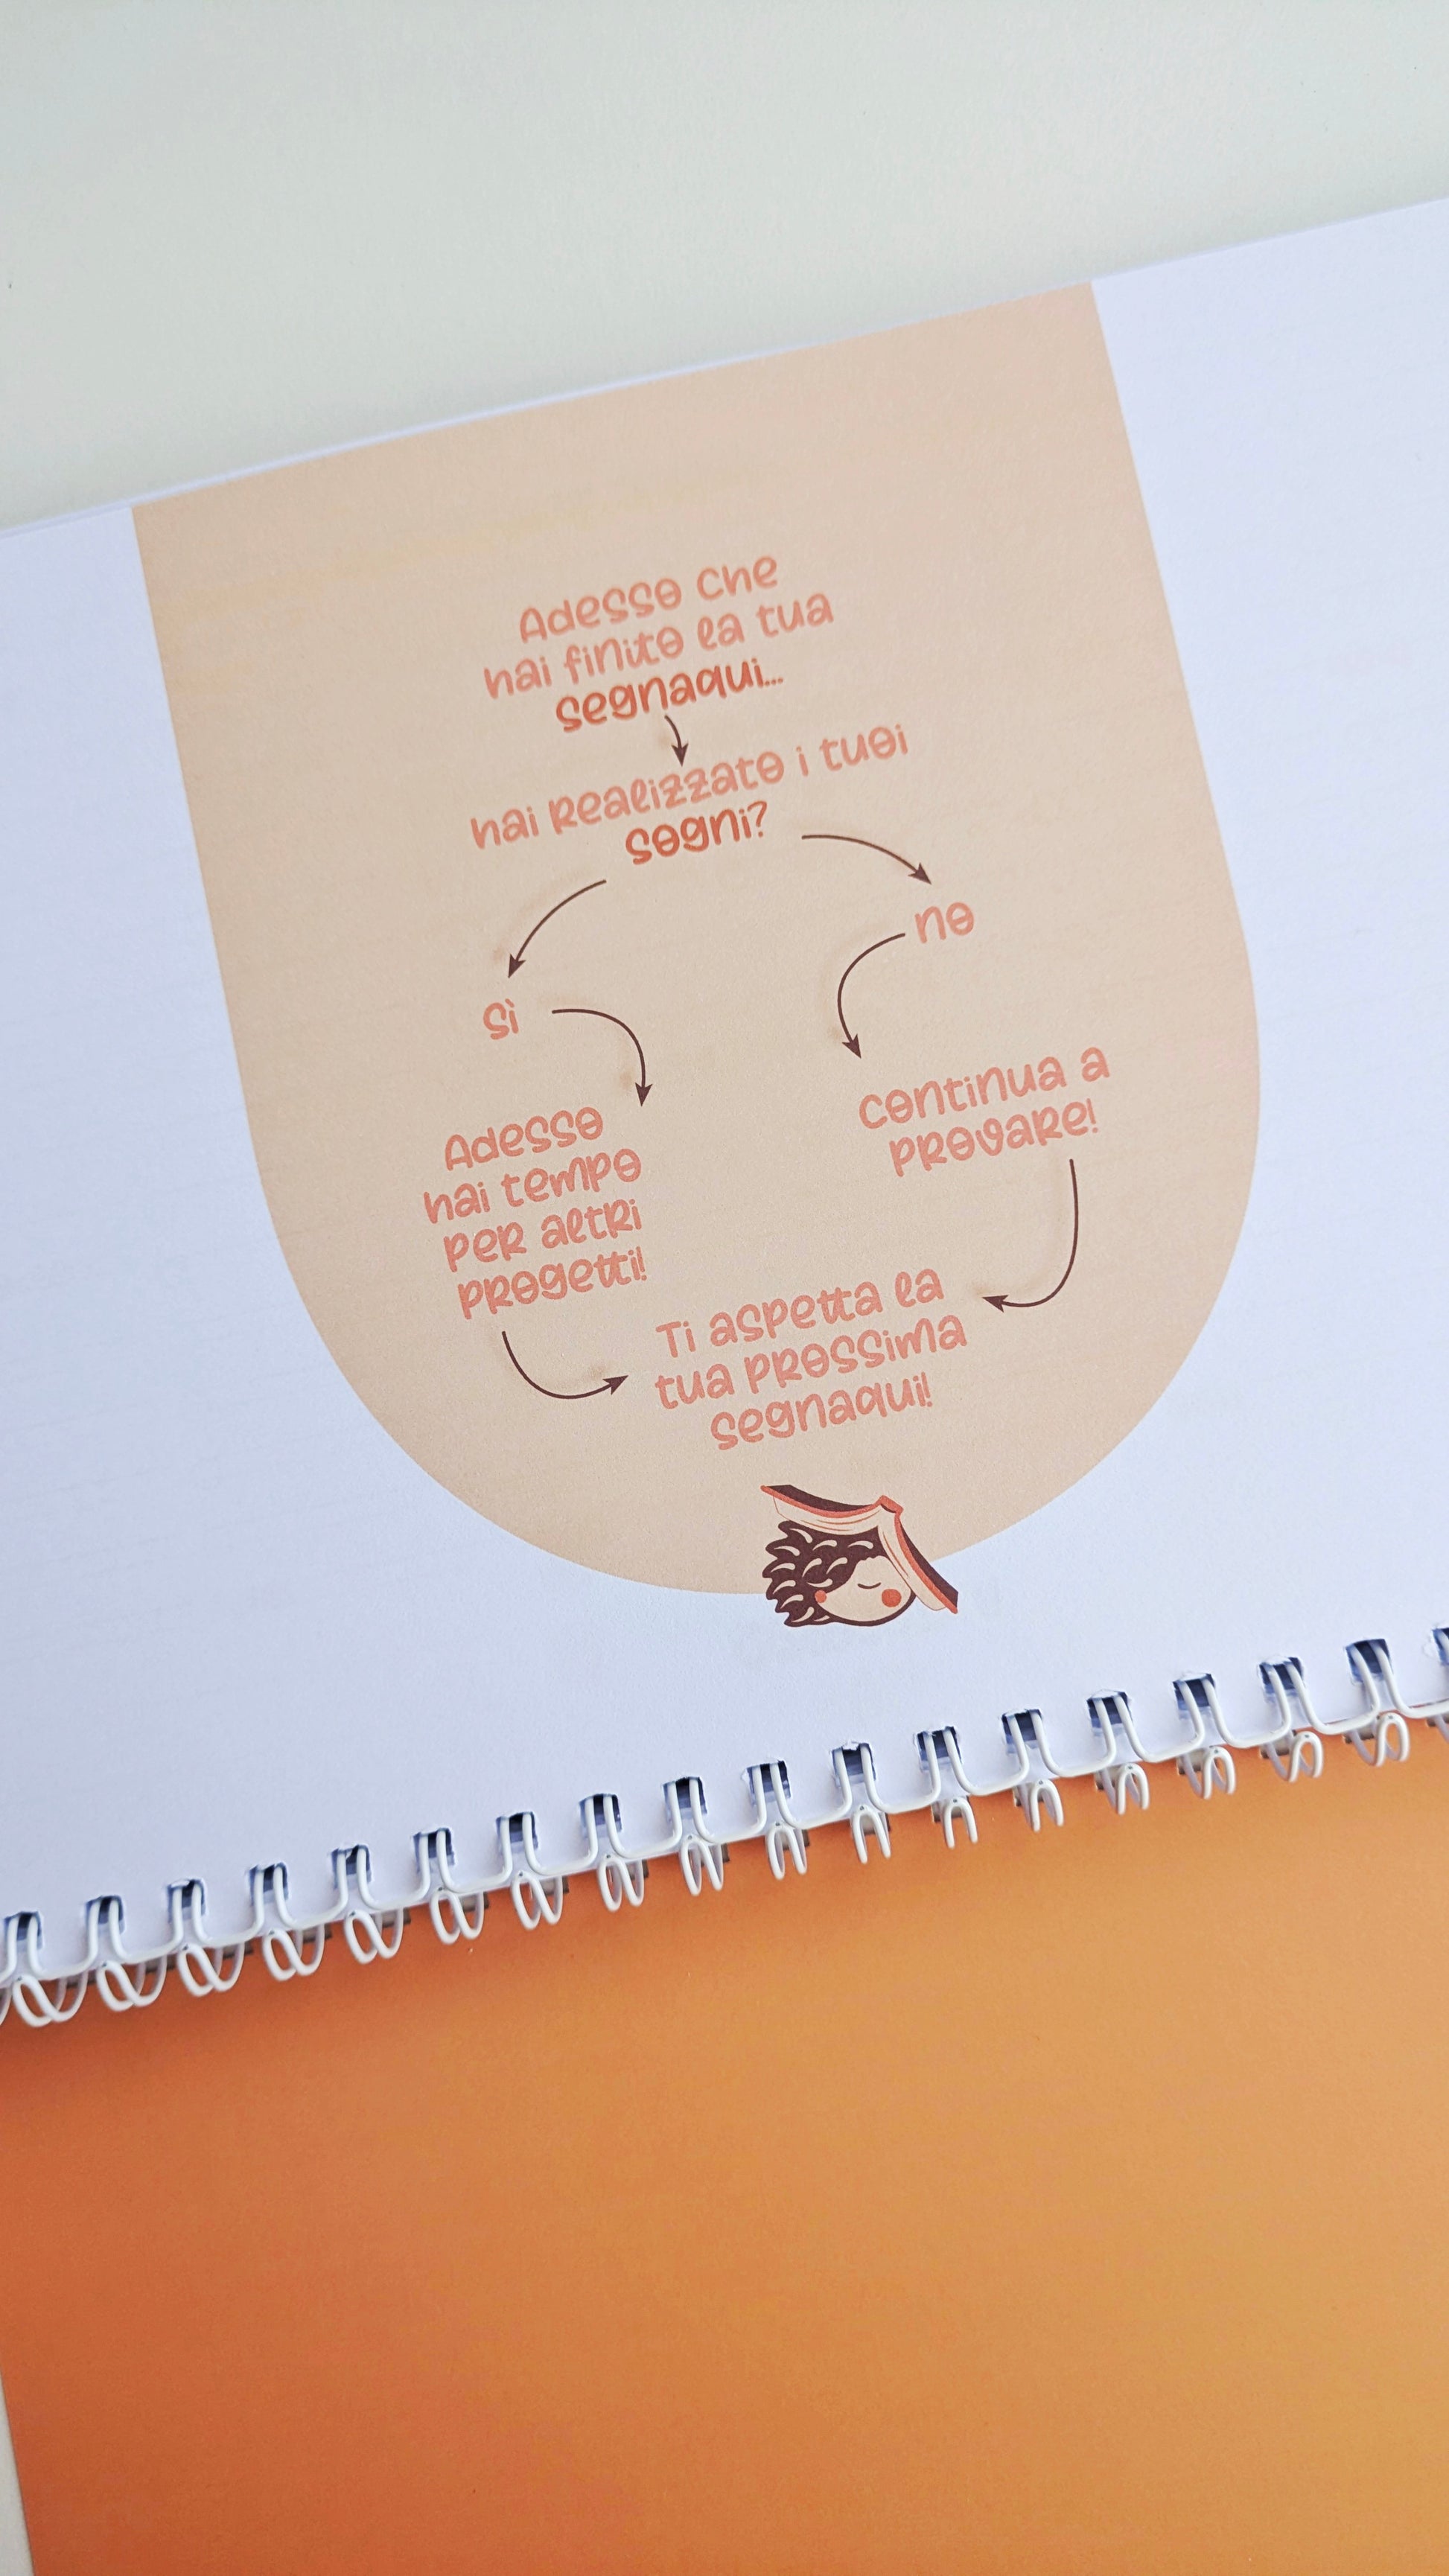 Adesso che
hai finito la tua
segnaqui...
hai realizzato i tuoi
sogni?
sì
no
Adesso
hai tempo
per altri
progetti!
continua a
provare!
Ti aspetta la
tua prossima
segnaqui!